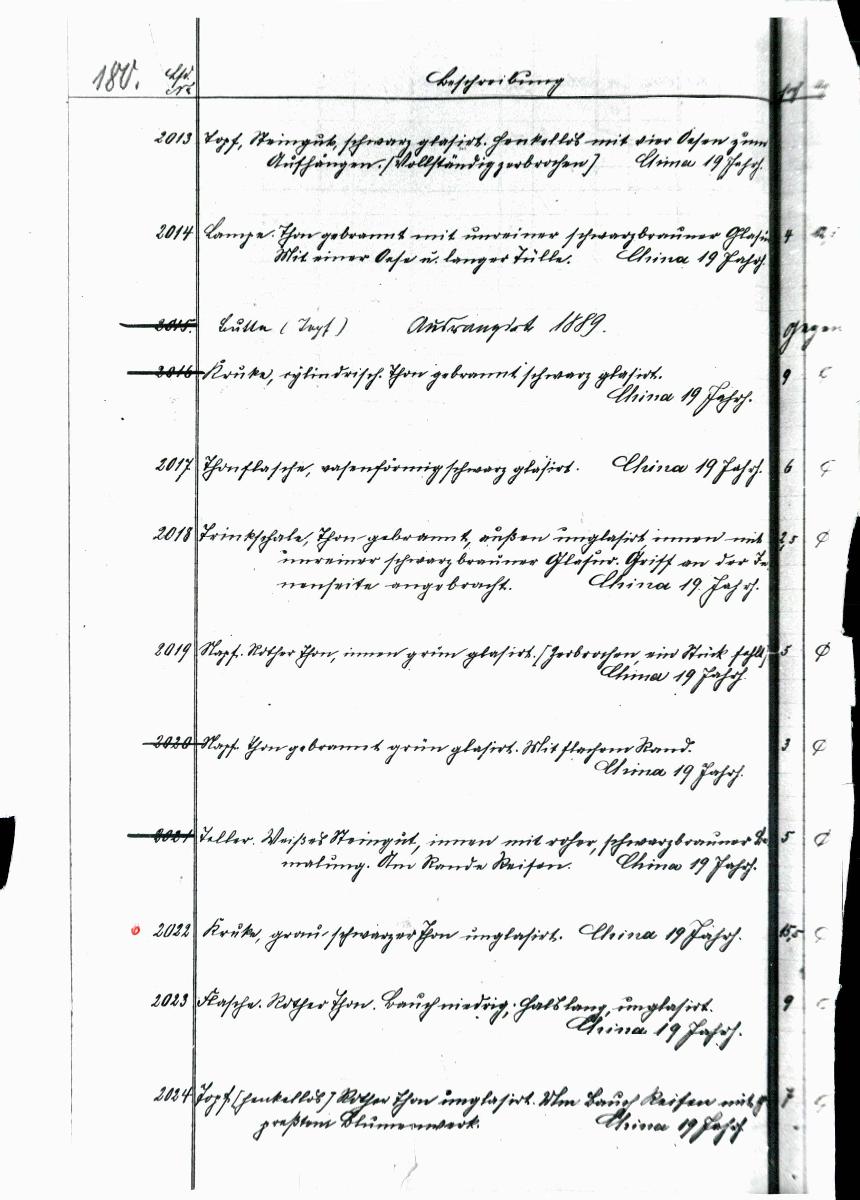 180. Lfd. Nr. Beschreibung H
2013 Topf, Steingut, schwarz glasirt. Henkellos mit vier Oesen zum
Aufhängen. [Vollständig zerbrochen] China 19 Jahrh.
2014 Lampe. Thon gebrannt mit unreiner schwarzbrauner Glasur 4
Mit einer Oese u. langer Tülle. China 19 Jahrh.
2015. Butte (Topf) Ausrangirt 1889. gegen
2016 Kruke, cylindrisch. Thon gebrannt schwarz glasirt. 9
China 19 Jahrh.
2017 Thonflasche, vasenförmig schwarz glasirt. China 19 Jahrh. 6
2018 Trinkschale, Thon gebrannt, außen unglasirt innen mit 2,5
unreiner schwarzbrauner Glasur. Griff an der In-
nenseite angebracht. China 19 Jahrh.
2019 Napf. Rother Thon, innen grün glasirt. [Zerbrochen, ein Stück fehlt] 5
China 19 Jahrh.
2020 Napf. Thon gebrannt grün glasirt. Mit flachem Rand. 3
China 19 Jahrh.
2021 Teller. Weißes Steingut, innen mit roher, schwarzbrauner Be- 5
malung. Am Rande Reifen. China 19 Jahrh.
2022 Kruke, grau-schwarzer Thon unglasirt. China 19 Jahrh. 15,5
2023 Flasche. Rother Thon. Bauch niedrig, Hals lang, unglasirt. 9
China 19 Jahrh.
2024 Topf [henkellos] Rother Thon unglasirt. Um Bauch Reifen mit ge- 7
preßtem Blumenwerk. China 19 Jahrh.